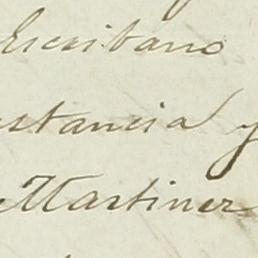 Escribano
estancia y
Martinez